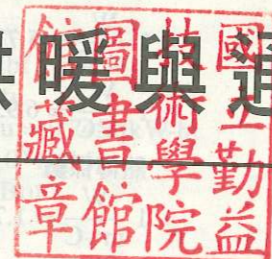 暖與通
國立勤益
技術學院
圖書館
館藏章